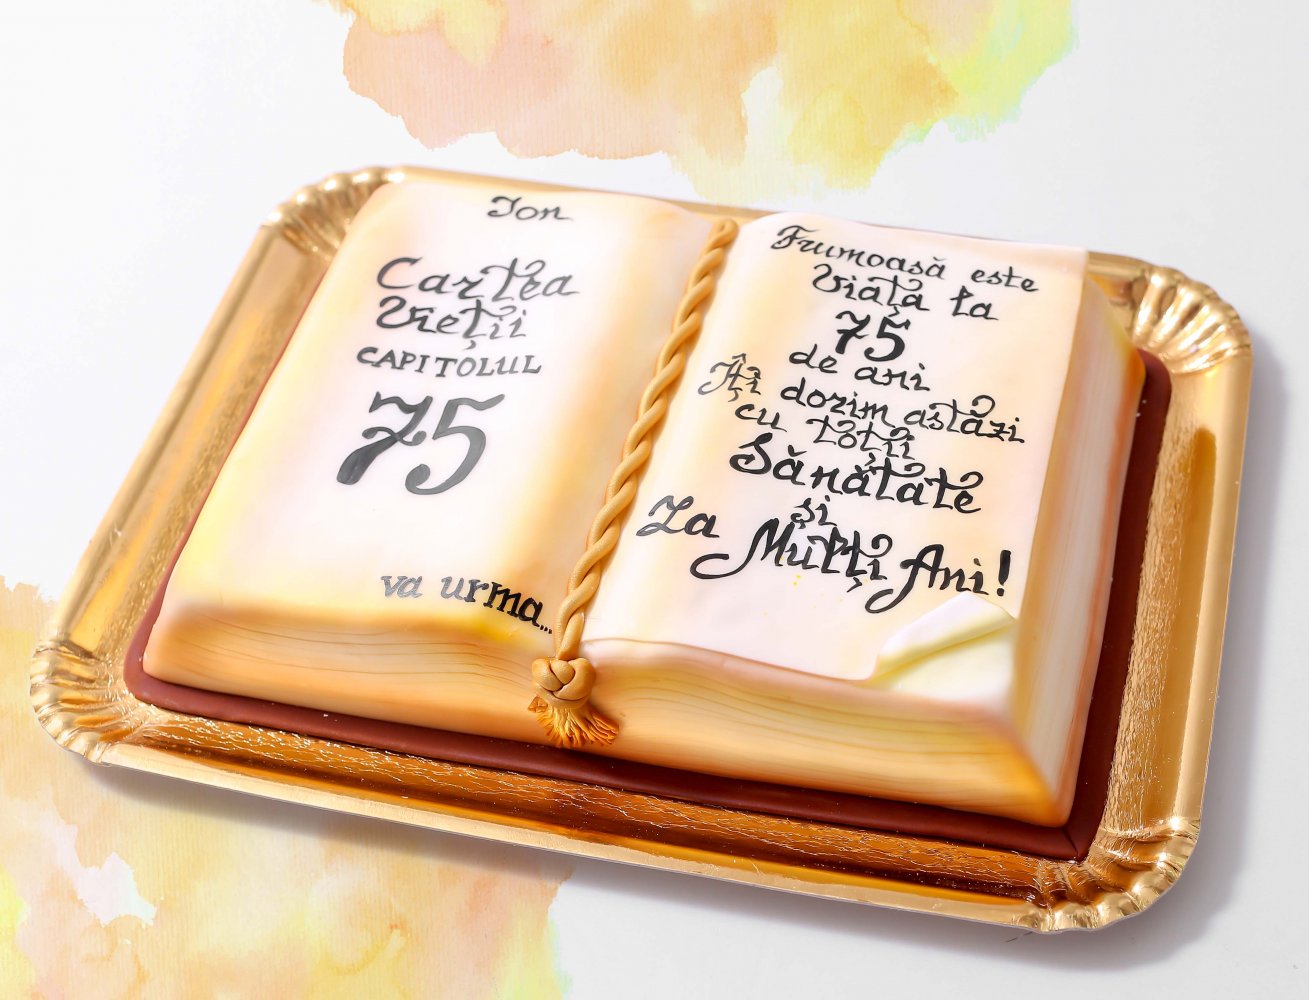 Ion
Cartea
Vieții
CAPITOLUL
75
va urma...
Frumoasă este
Viața la
75
de ani
Îți dorim astăzi
cu toții
Sănătate
și
La Mulți Ani!